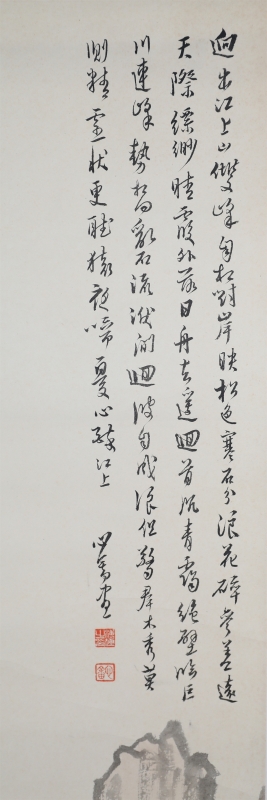 迥出江上山雙峰自相對岸映松色寒石分浪花碎參差遠
天際縹緲晴霞外落日舟去遙迴首沉青靄絕壁臨巨
川連峰勢相向亂石流洑間迴波自成浪但驚群木秀莫
測精靈狀更聽猿夜啼憂心醉江上
心畬畫